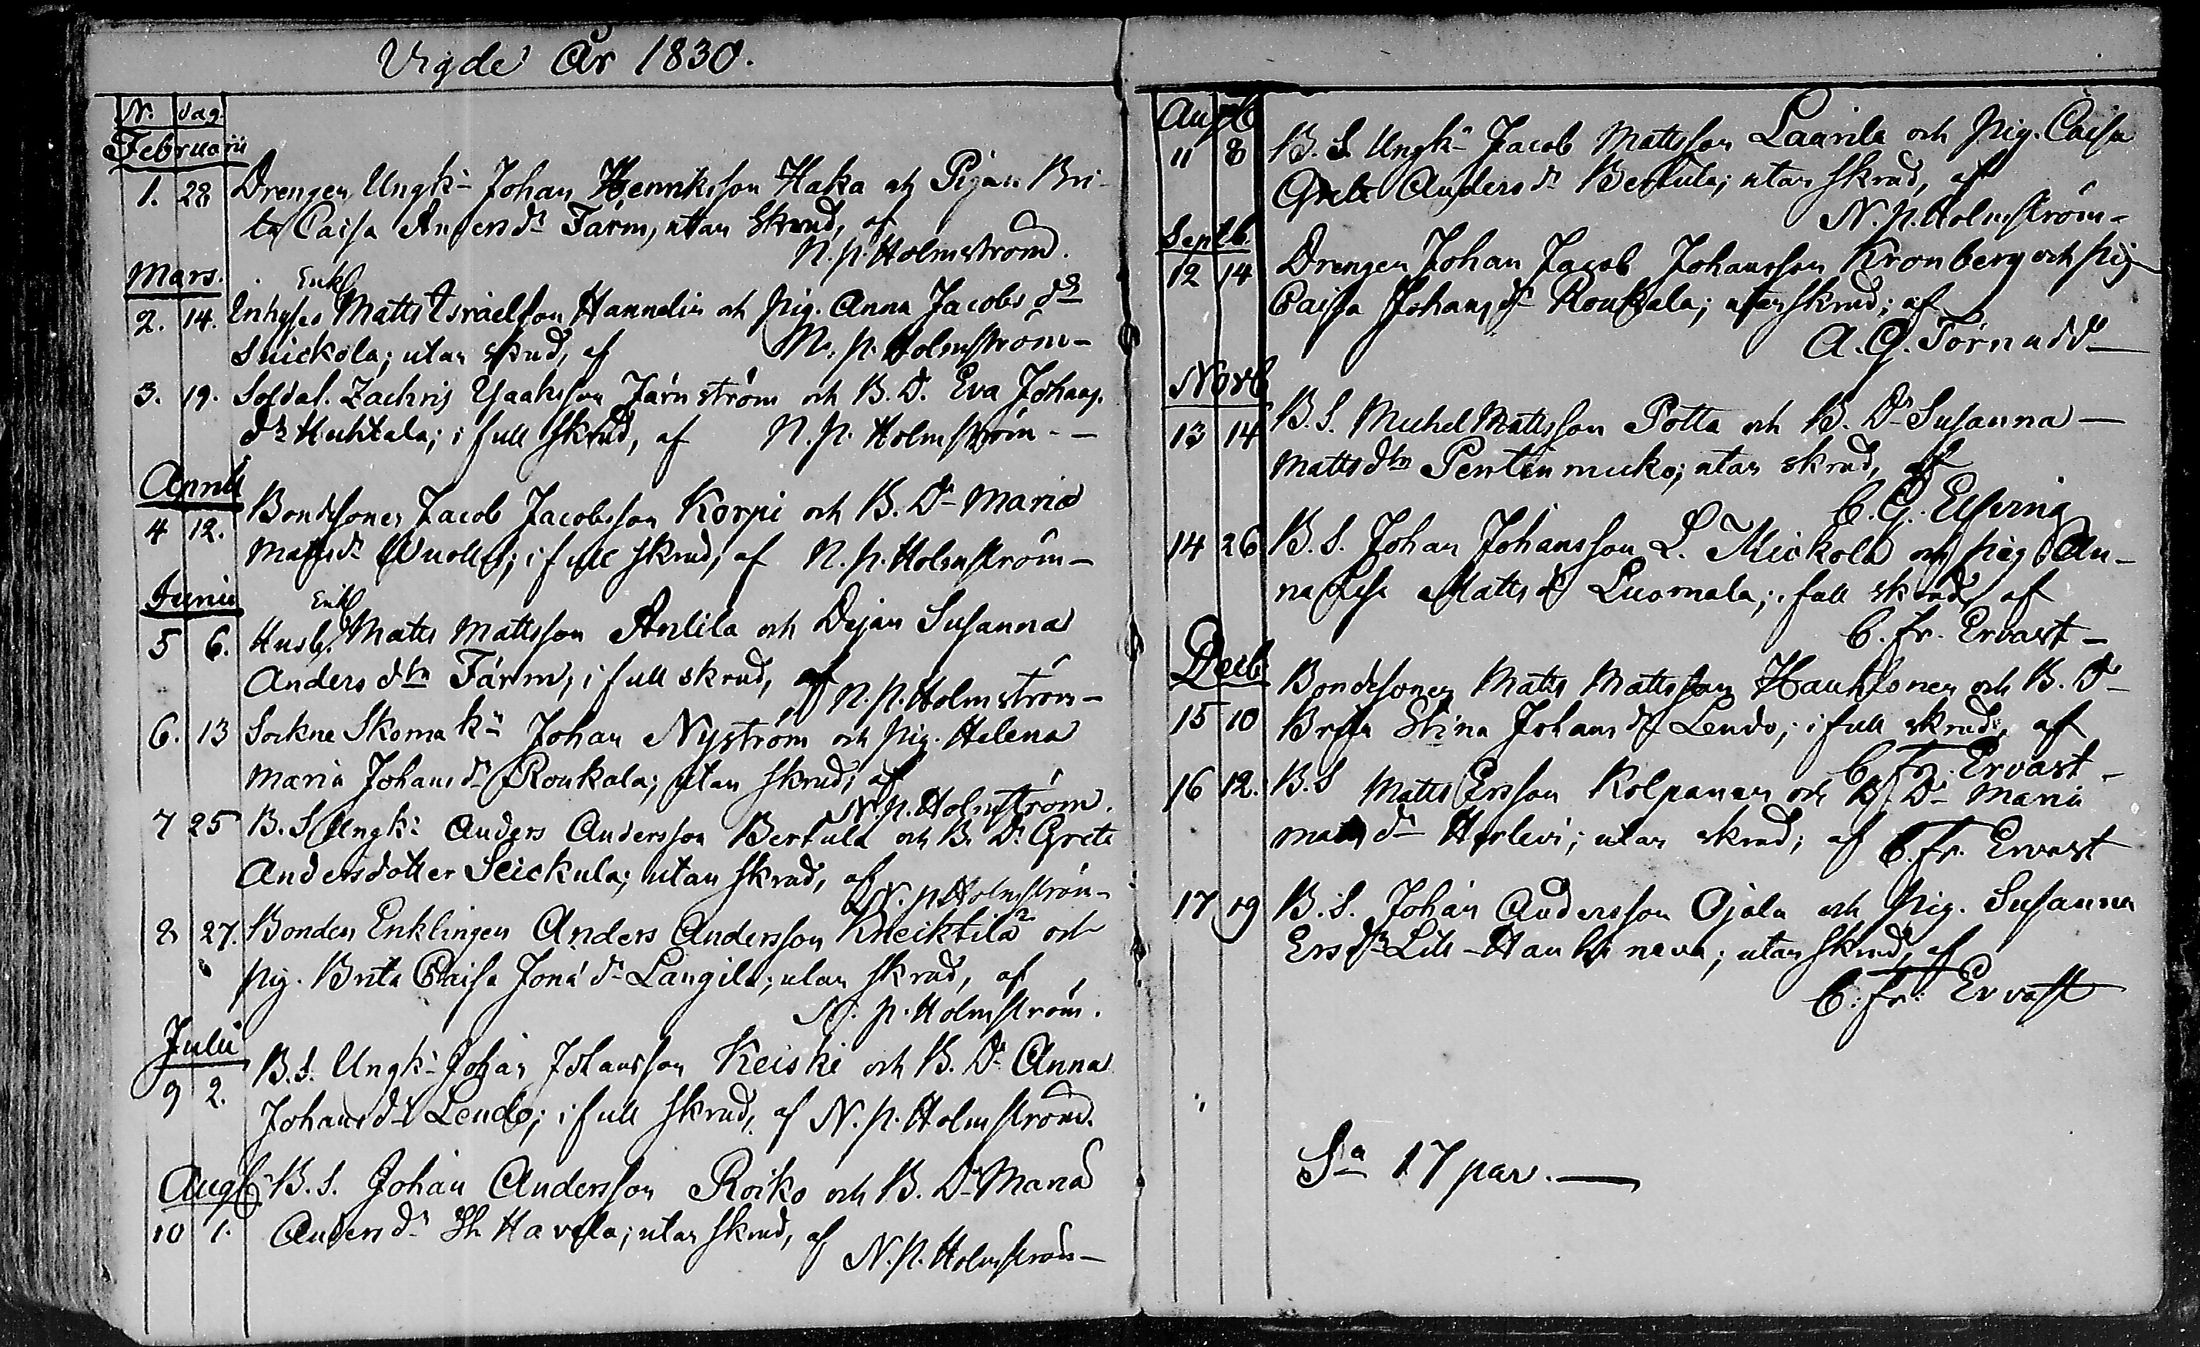 Vigde År 1830.
N. dag.
Februarii
1. 28 Drengen Ungk. Johan Henriksson Haka och Pigan Bri-
ta Caisa Anders dr Färm, utan skrud, af
N. P. Holmström.
Mars.
Enkl
2. 14. Inhyses Matts Israelsson Hannelin och Pig. Anna Jacobs dr
Snickola; utan skrud, af N. P. Holmström-
3. 19. Soldat. Zachris Isaaksson Järnström och B. D. Eva Johans
dr Huhtala; i full skrud, af N. P. Holmström. -
April
4 12. Bondesonen Jacob Jacobsson Korpi och B. Dr Maria
Matts dr Wuolle; i full skrud, af N. P. Holmström-
Junii
Enkl
5 6. Husb. Matts Mattsson Anlila och Dejan Susanna
Anders dtr Färm, i full skrud, af N. P. Holmström-
6. 13 Sockne Skomak. Johan Nyström och Pig. Helena
Maria Johans dr Roukala; utan skrud; af
N. P. Holmström.
7 25 B. S. Ungk. Anders Andersson Bertula och B. Dr Greta
Andersdotter Seickula; utan skrud, af
N. P. Holmström-
8 27. Bonden Enklingen Anders Andersson Kneiktila och
Pig. Brita Caisa Jona dr Langila; utan skrud, af
N. P. Holmström.
Julii
9 2. B. S. Ungk. Johan Johansson Keiski och B. Dr Anna
Johans dr Lendo; i full skrud, af N. P. Holmström.
Aug
10 1. B. S. Johan Andersson Roiko och B. Dr Maria
Anders dr Havela; utan skrud, af
N. P. Holmström-
Aug
11 8 B. S. Ungk. Jacob Mattsson Laarila och Pig. Caisa
Greta Anders dr Bertula; utan skrud, af
N. P. Holmström-
Septb.
12 14 Drengen Johan Jacob Johansson Kronberg och Pig
Caisa Johans dr Roukala; utan skrud; af
A. G. Törnudd
Novb
13 14 B. S. Michel Mattsson Potta och B. Dr Susanna -
Matts dtr Pentinmicko; utan skrud, af
C. G. Elfving
14 26 B. S. Johan Johansson L. Mickola och Pig An-
na Lisa Matts dr Luomala; i full skrud af
C. Fr. Ervast-
Decb
15 10 Bondesonen Matts Mattsson Hauhtonen och B. Dr
Brita Stina Johans dr Lendo; i full skrud; af
C. Fr. Ervast-
16 12. B. S Matts Ersson Kolpanen och B. Dr Maria
Matts dr Herlevi; utan skrud; af C. Fr. Ervast
17 19 B. S. Johan Andersson Ojala och Pig. Susanna
Ers dr Hauhinava; utan skrud, af
C. Fr: Ervast
Sa 17 par. -